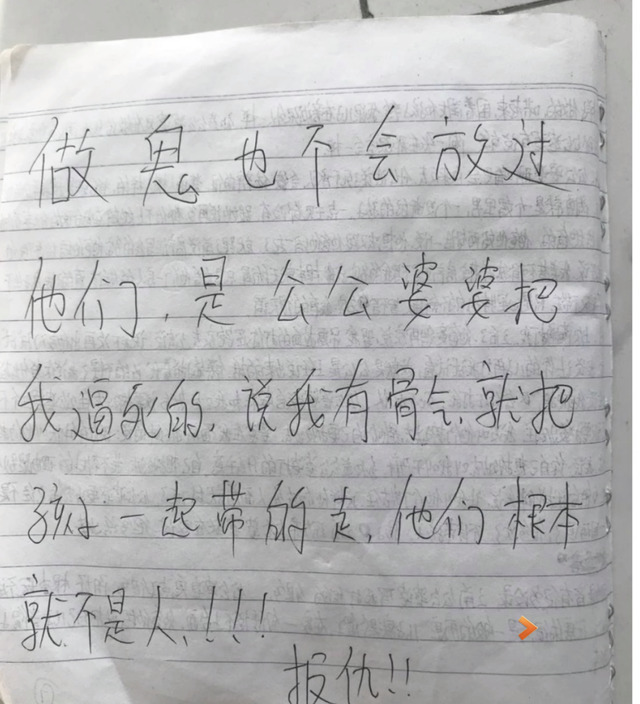 做鬼也不会放过
他们，是公公婆婆把
我逼死的，说我有骨气，就把
孩子一起带的走，他们根本
就不是人，！！！
报仇！！